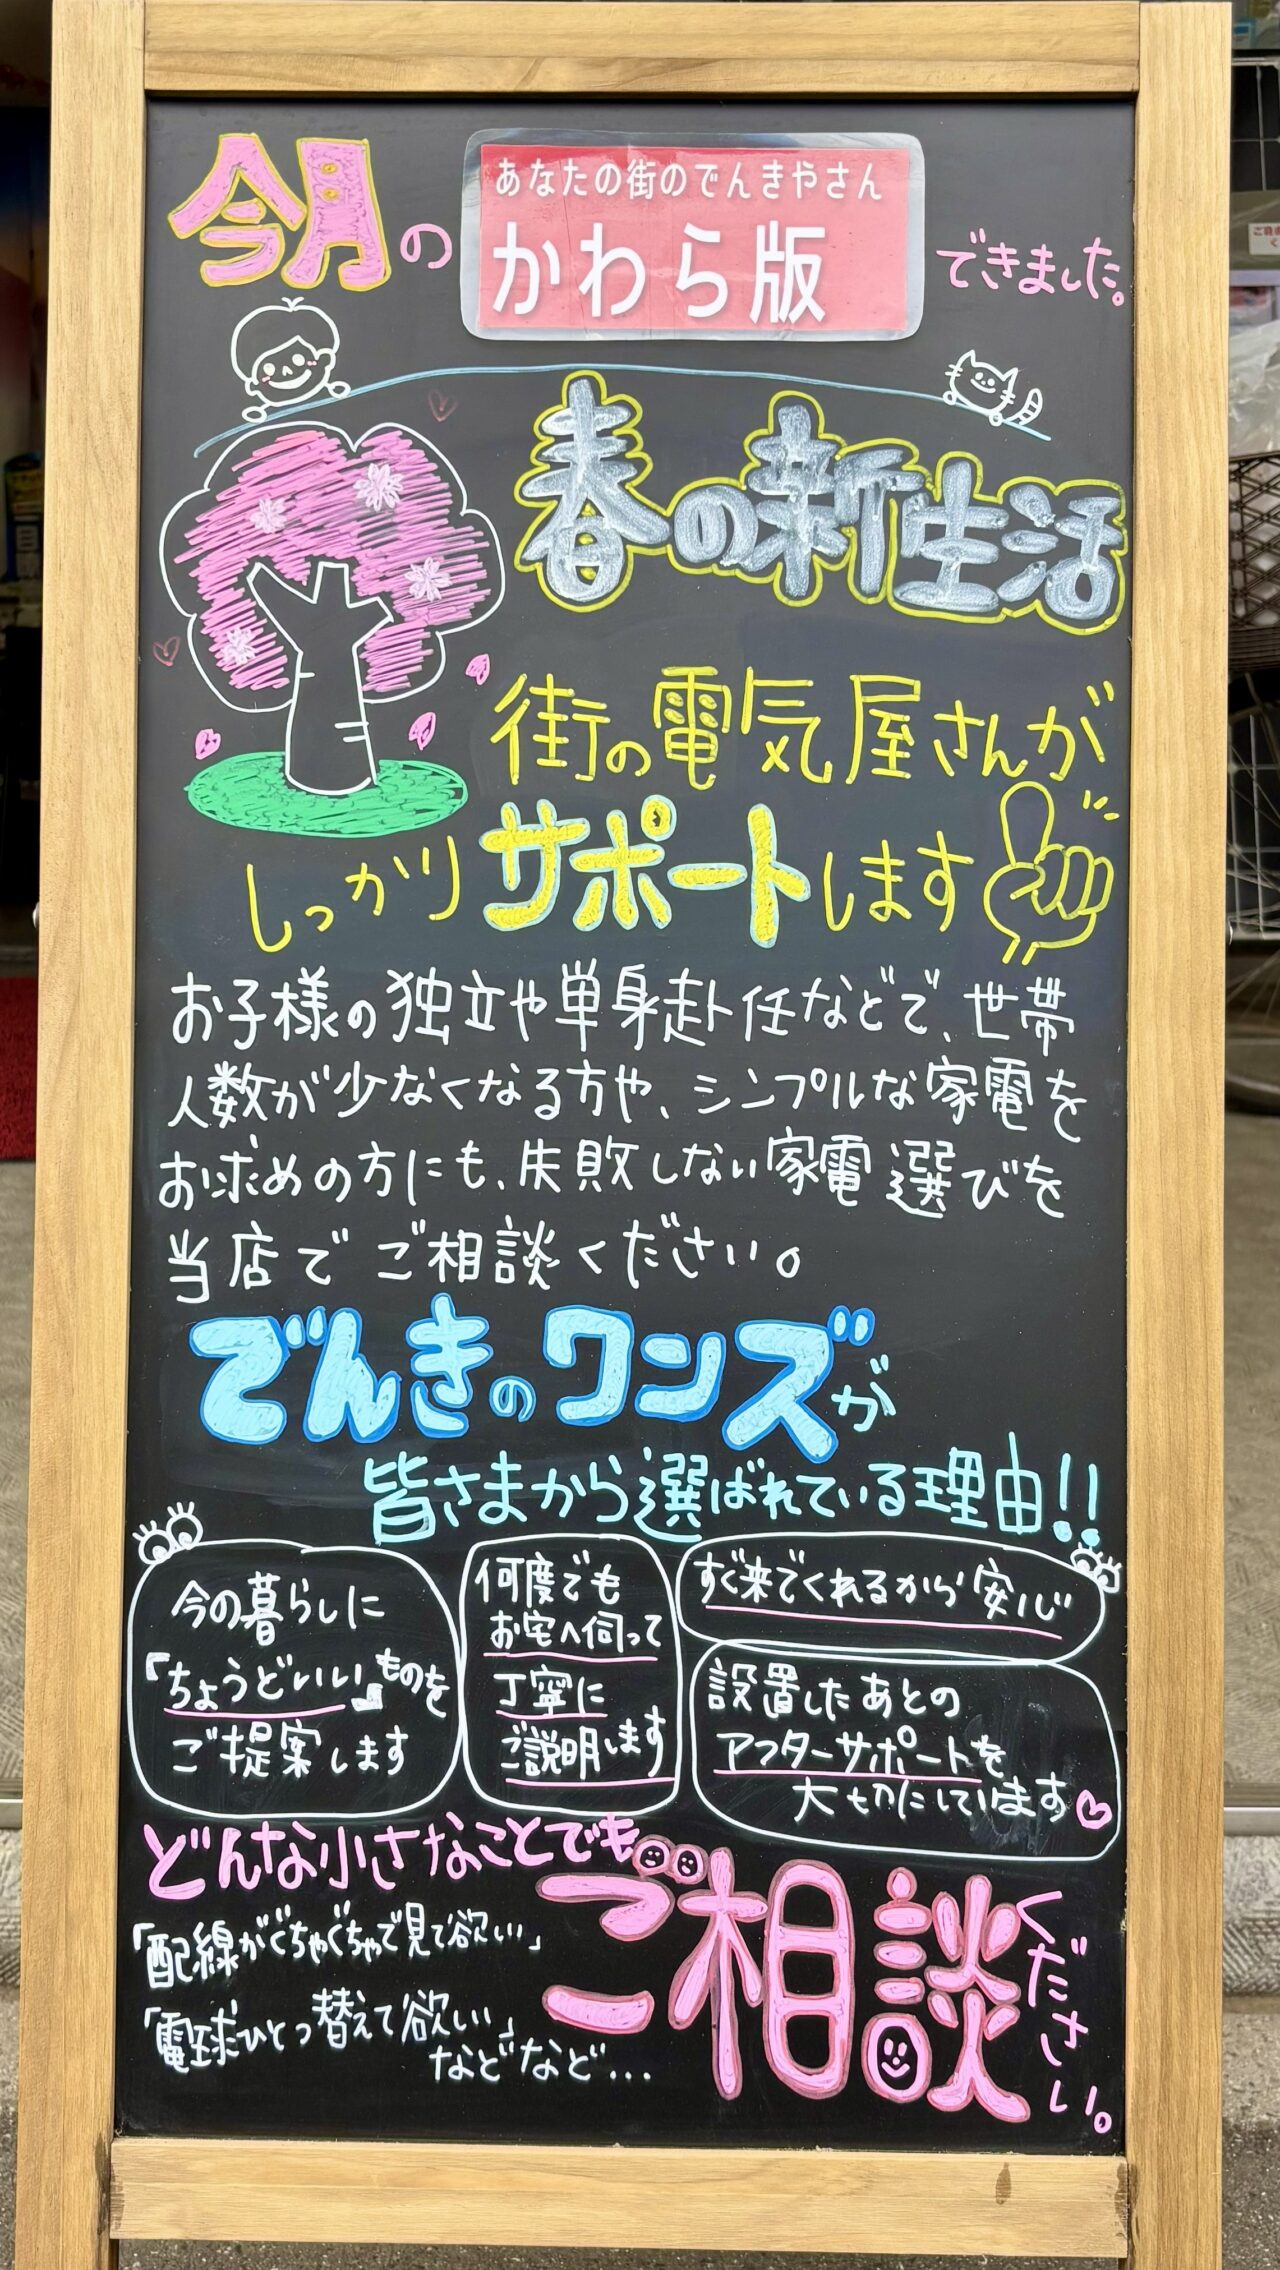 今月の
あなたの街のでんきやさん
かわら版
できました。
春の新生活
街の電気屋さんが
しっかりサポートします
お子様の独立や単身赴任などで、世帯
人数が少なくなる方や、シンプルな家電を
お求めの方にも、失敗しない家電選びを
当店でご相談ください。
でんきのワンズが
皆さまから選ばれている理由!!
今の暮らしに
「ちょうどいい」ものを
ご提案します
何度でも
お宅へ伺って
丁寧に
ご説明します
すぐ来てくれるから安心
設置したあとの
アフターサポートを
大切にしています
どんな小さなことでも
ご相談ください。
「配線がぐちゃぐちゃで見て欲しい」
「電球ひとつ替えて欲しい」
などなど...